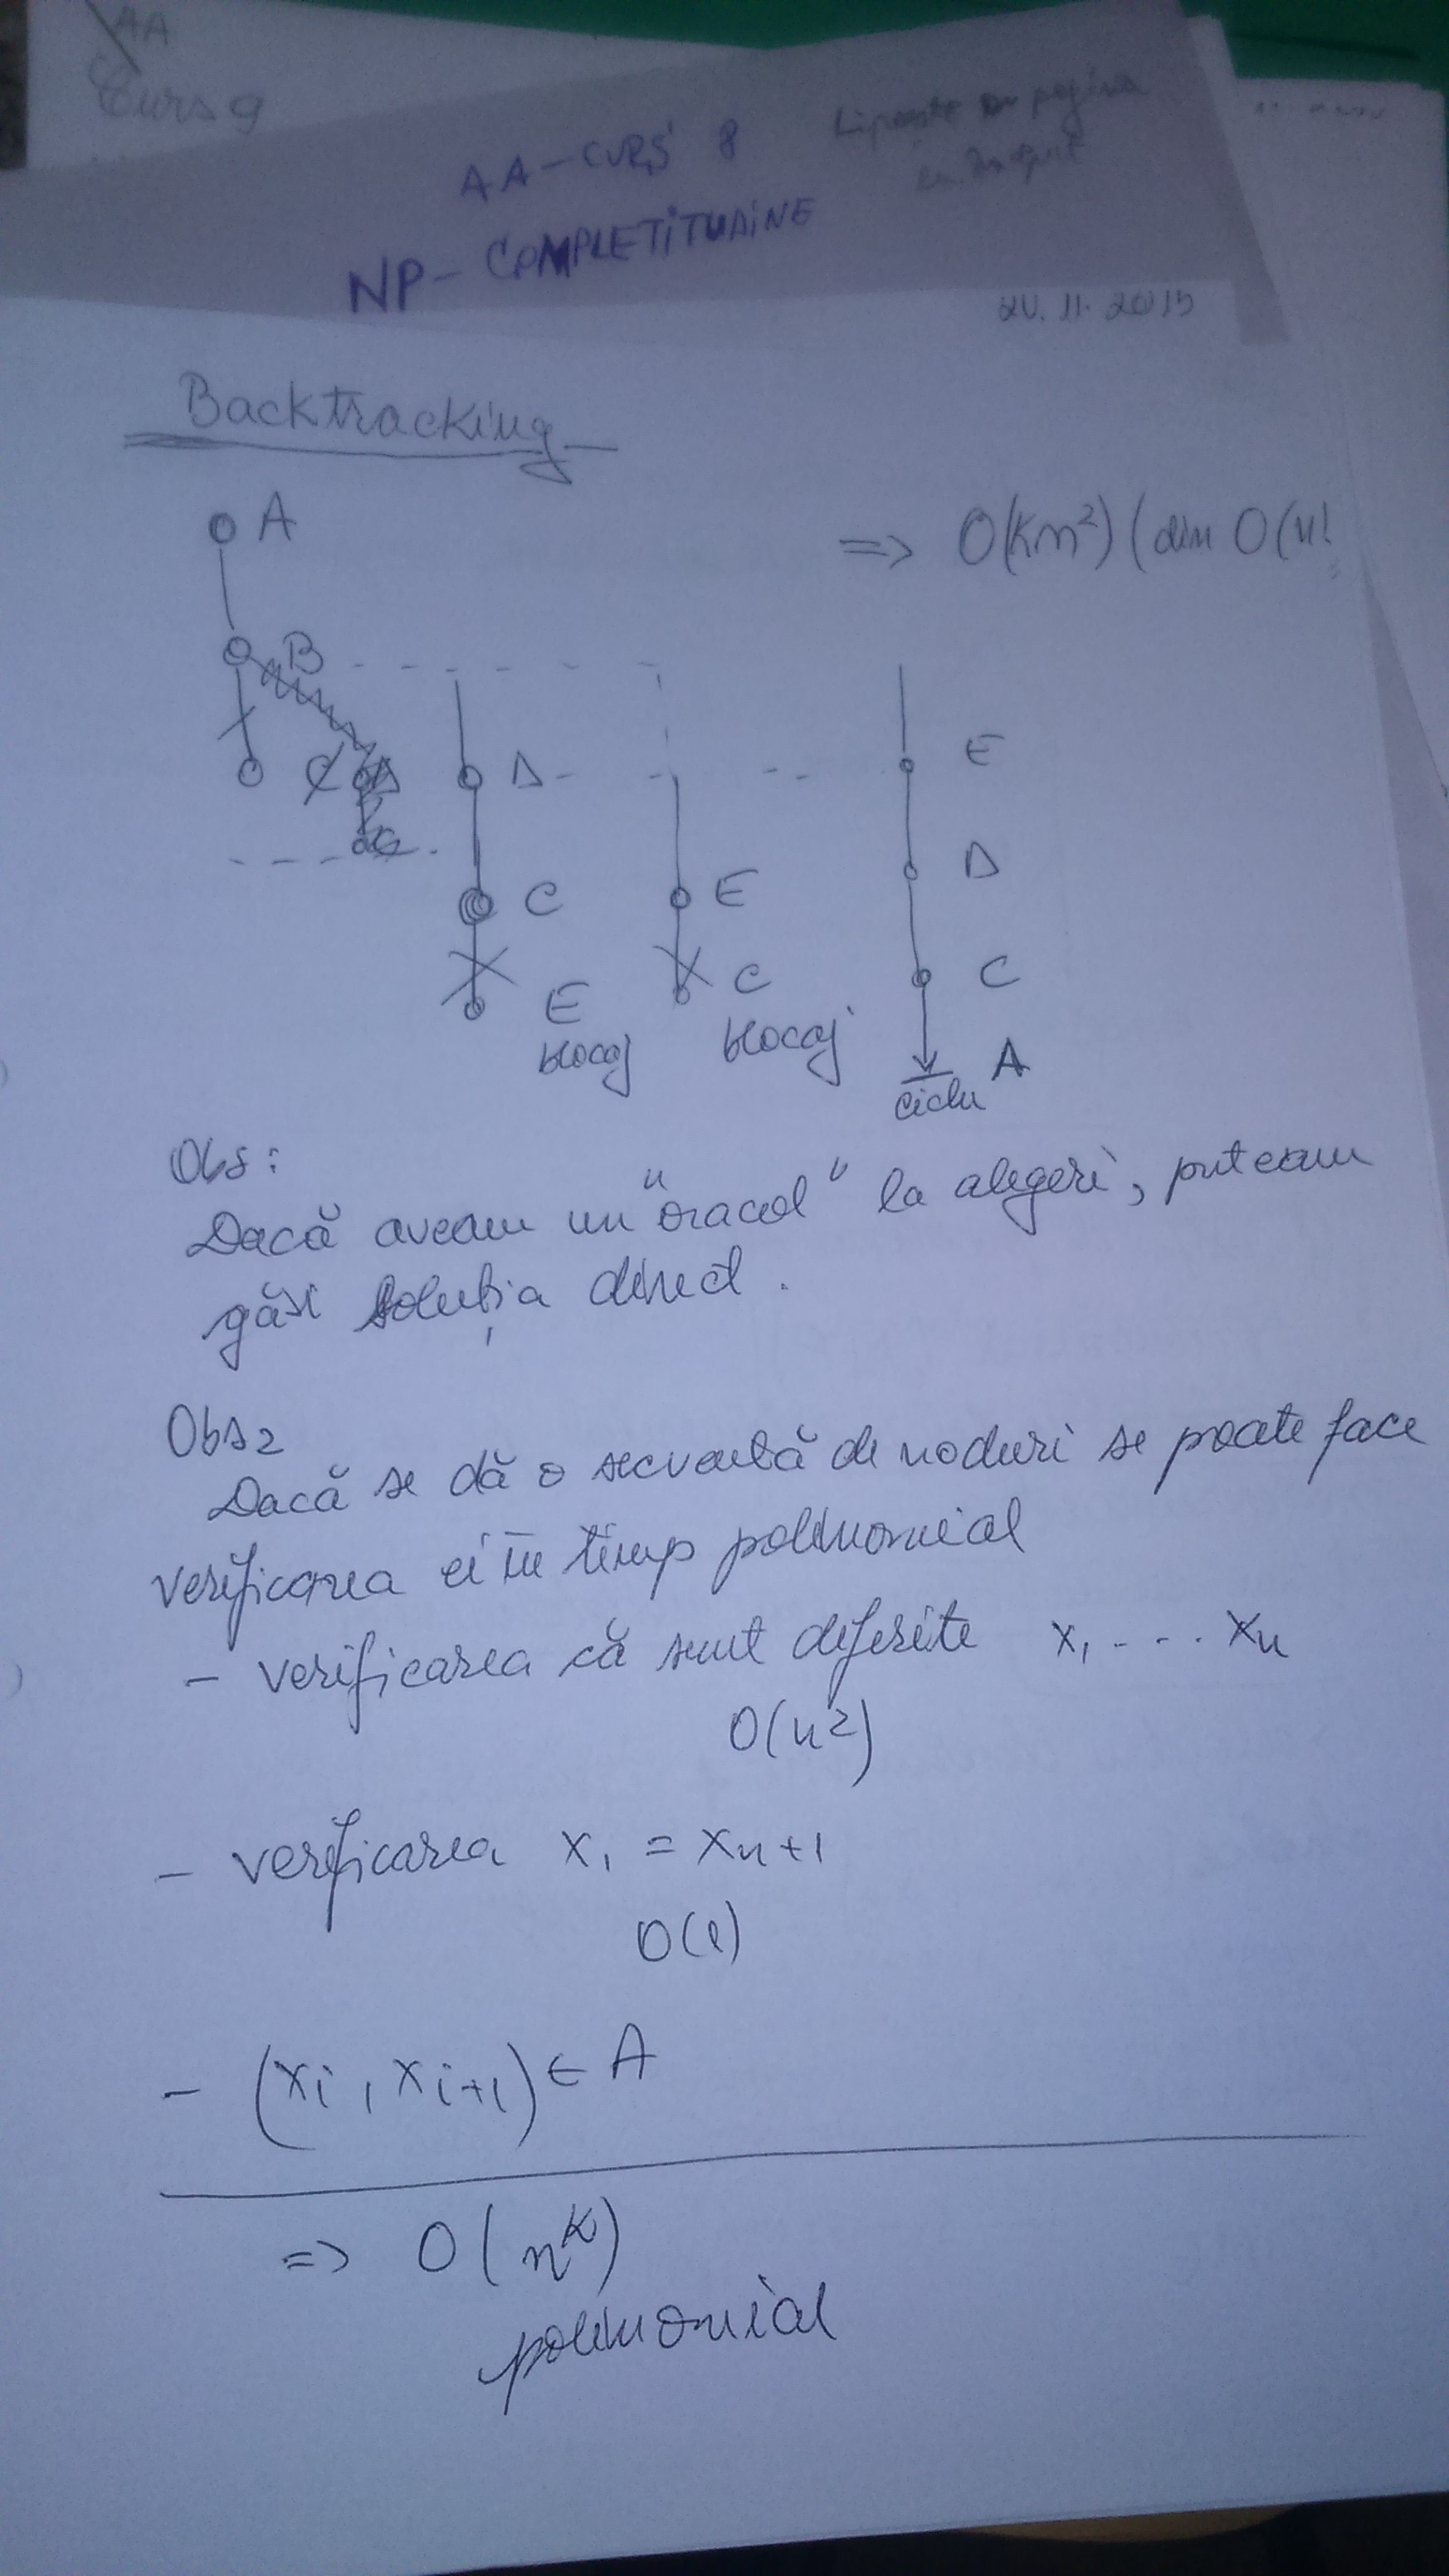 AA
Curs 9
AA - CURS 8
Lipește pagina
NP - COMPLETITUDINE
20.11.2015
Backtracking
A
=> O(kn²) (din O(n!
B
C D D E
C D
C E
E C C
blocaj blocaj A
ciclu
Obs:
Dacă aveam un "oracol" la alegeri, puteam
găsi soluția direct.
Obs2
Dacă se dă o secvență de noduri se poate face
verificarea ei în timp polinomial
- verificarea că sunt diferite x₁ - - - xn
O(n²)
- verificarea x₁ = xn+1
O(1)
- (xi, xi+1) ∈ A
=> O(n^k)
polinomial